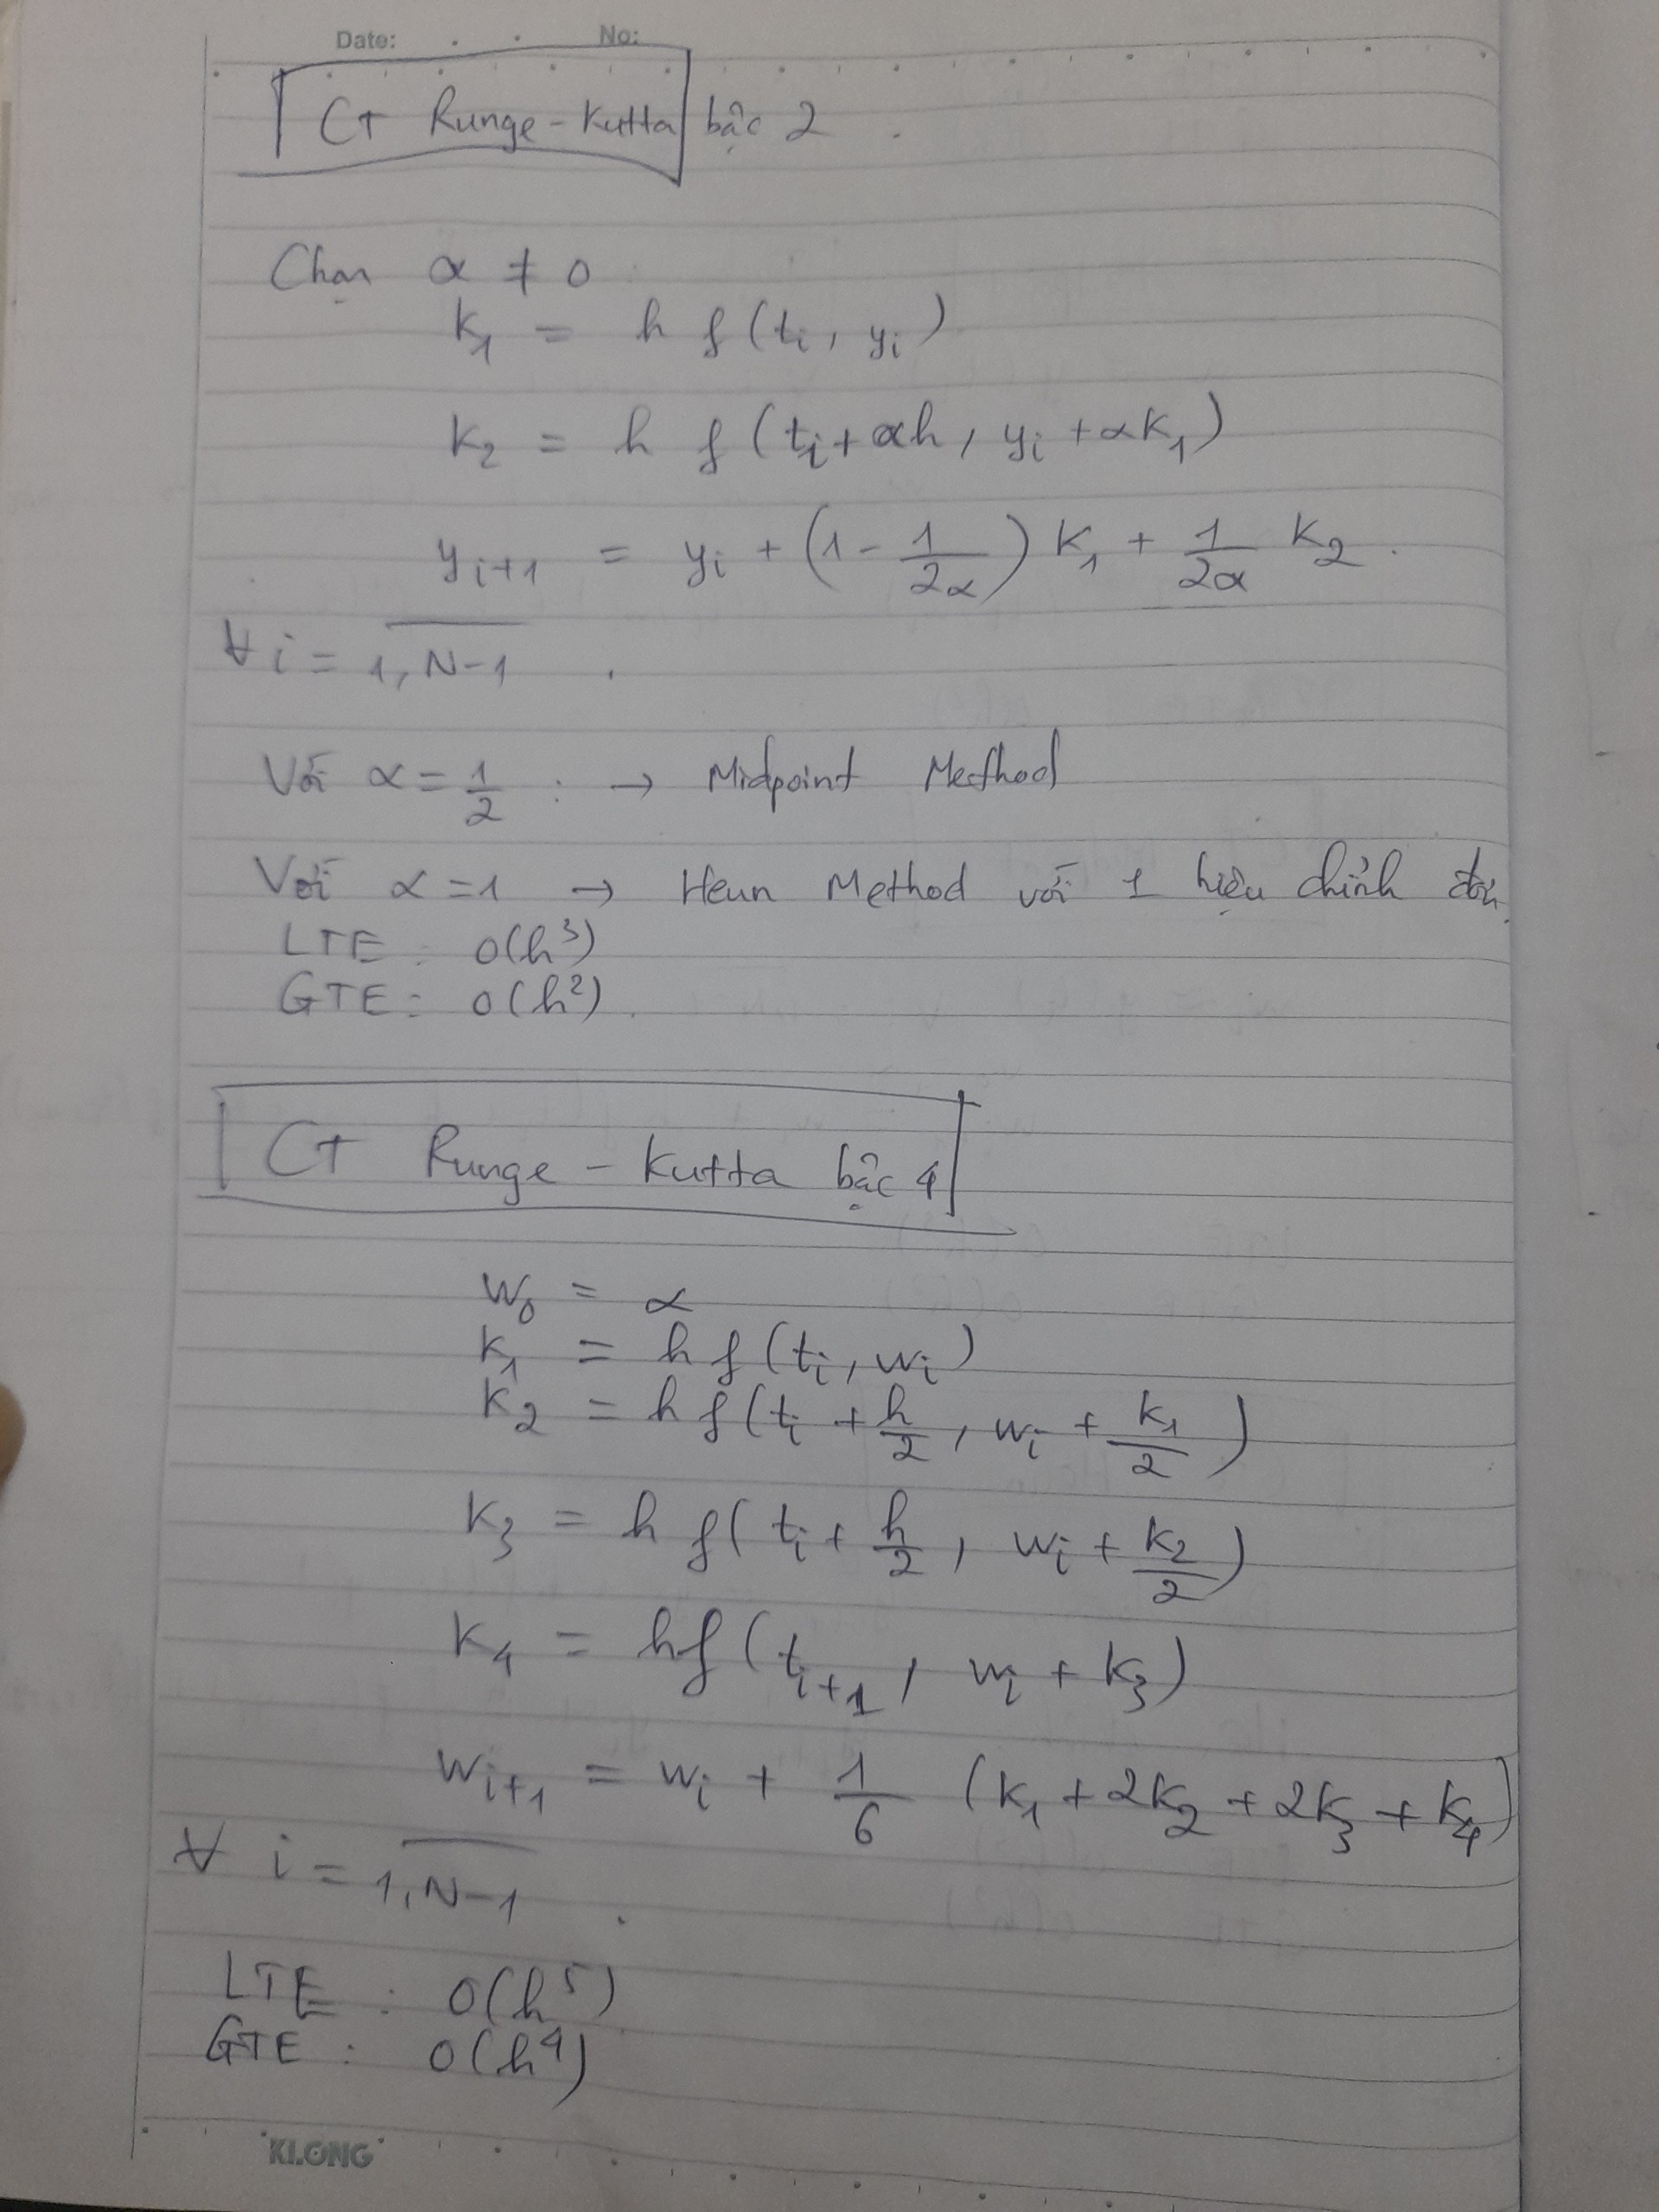 Date: No:
CT Runge - Kutta bậc 2.
Chọn α ≠ 0
K₁ = h f(tᵢ, yᵢ)
K₂ = h f(tᵢ + αh, yᵢ + αK₁)
yᵢ₊₁ = yᵢ + (1 - 1/2α) K₁ + 1/2α K₂.
∀ i = \overline{1, N-1}.
Với α = 1/2 : → Midpoint Methhod
Với α = 1 → Heun Method với 1 hiệu chỉnh đơn.
LTE : O(h³)
GTE : O(h²).
CT Runge - Kutta bậc 4
W₀ = α
K₁ = h f(tᵢ, wᵢ)
K₂ = h f(tᵢ + h/2, wᵢ + K₁/2)
K₃ = h f(tᵢ + h/2, wᵢ + K₂/2)
K₄ = h f(tᵢ₊₁, wᵢ + K₃)
Wᵢ₊₁ = wᵢ + 1/6 (K₁ + 2K₂ + 2K₃ + K₄)
∀ i = \overline{1, N-1}.
LTE : O(h⁵)
GTE : O(h⁴)
KLONG